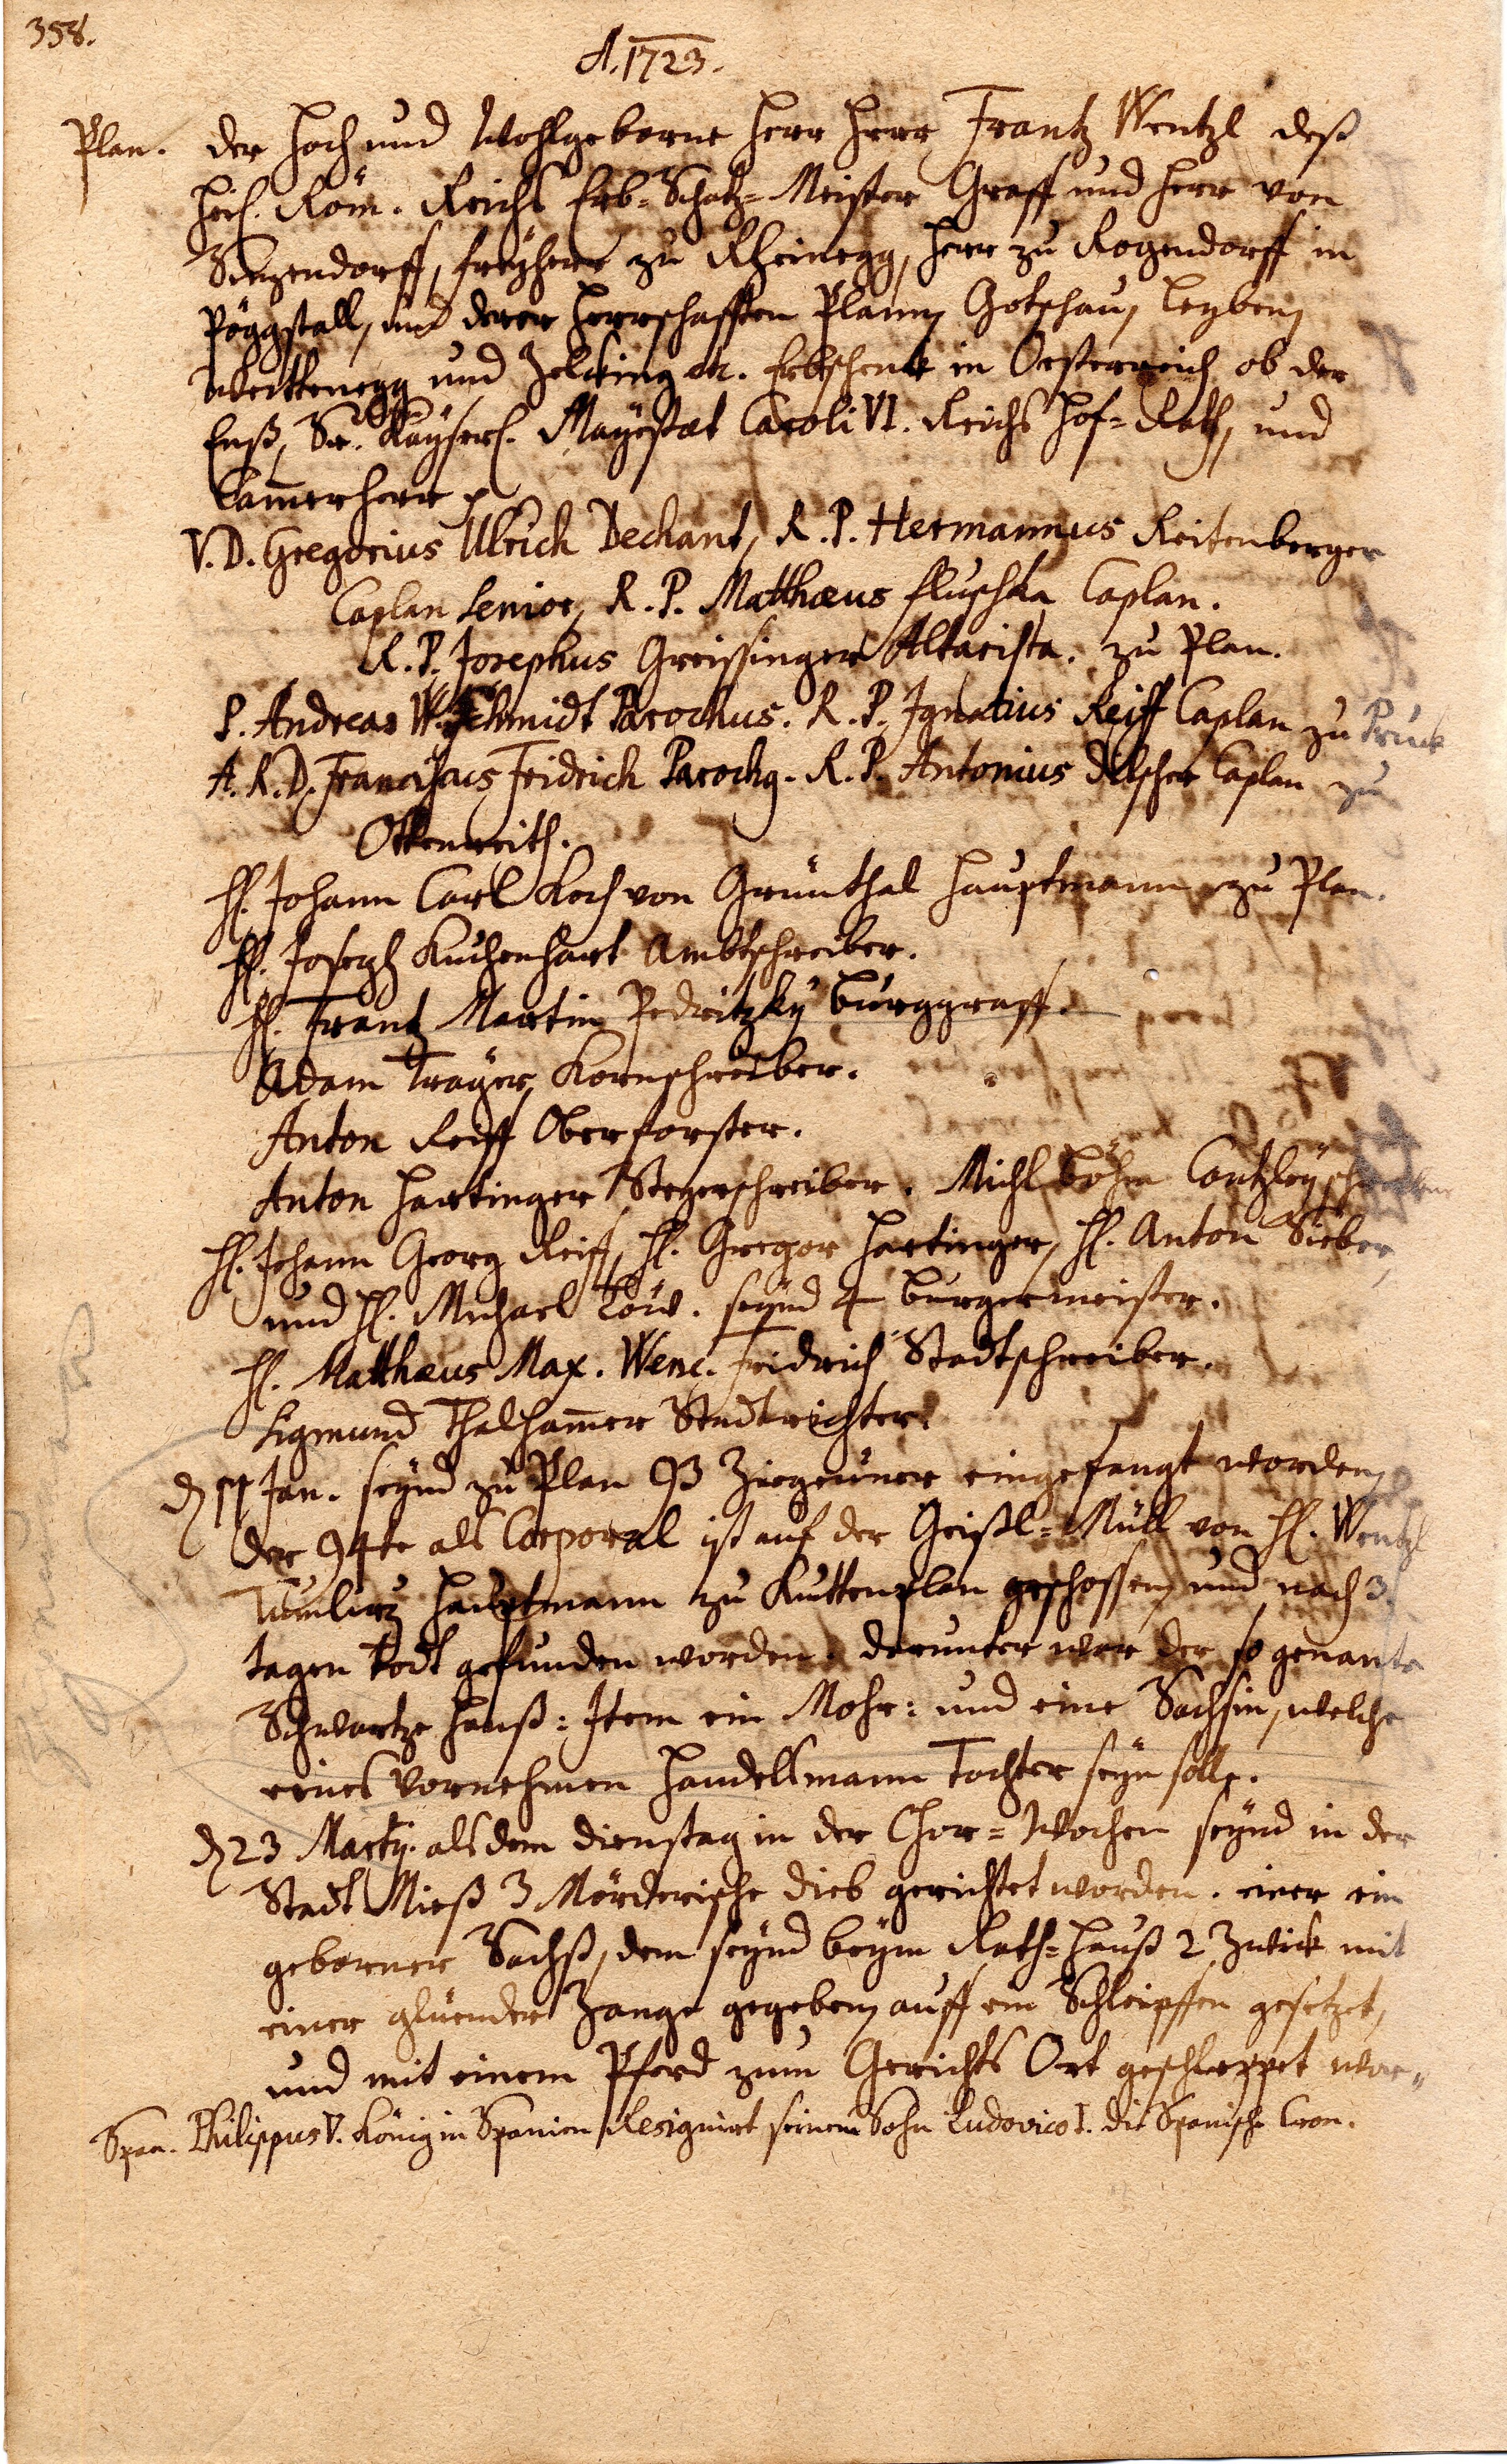 358.
A. 1723.
Plan. Der Hoch und Wohlgeborne Herr Herr Frantz Wentzl deß
Heil. Röm. Reichs Erb-Schatz-Meister Graff und Herr von
Sinzendorff, freyherr zu Rheinegg, Herr zu Rogendorff in
Pöggstall, und derer Herrschafften Plann, Gotschau, Leyben,
Weittenegg und Zelcking etc. Erbschenk in Oesterreich ob der
Enß, Sr. Kayserl. Mayestät Caroli VI. Reichs Hof-Rath, und
Camerherr p
V. D. Gregorius Ulrich Dechant, R. P. Hermannus Reitenberger
Caplan Senior, R. P. Matthæus Fluschka Caplan.
R. P. Josephus Greissinger Altarista. zu Plan.
P. Andreas W. Schmidt Parochus. R. P. Ignatius Reiff Caplan zu Pruck
A. R. D. Franciscus Fridrich Parochq. R. P. Antonius Delscher Caplan zu
Ottenreith.
H. Johann Carl Koch von Grünthal Hauptmann zu Plan.
H. Joseph Kuchenhart Ambtschreiber.
H. Frantz Martin Pedritzky Burggraff.
Adam Träger, Kornschreiber.
Anton Reiff Oberforster.
Anton Hartinger Stegerschreiber. Michl Böhm Cantzleyschreiber
H. Johann Georg Reiff, H. Gregor Hartinger, H. Anton Sieber,
und H. Michael Löw. seynd 4 Burgermeister.
H. Matthæus Max. Wenc. Fridrich Stadtschreiber.
Sigmund Thalhamer Stadtrichter.
d 11 Jan. seynd zu Plan 93 Ziegeuner eingefangt worden,
der 94te als Corporal ist auf der Geißl-Müll von H. Wentzl
Tumlirz Hauptmann zu Kuttenplan geschossen, und nach 3.
tagen todt gefunden worden. darunter war der so genante
Schwartze Hanß: Item ein Mohr: und eine Sachsin, welche
eines vornehmen Handelsmann Tochter seyn solle.
d 23 Martij. als dem Dienstag in der Chor-Wochen seynd in der
Stadt Mieß 3 Mörderische Dieb gerichtet worden. einer ein
geborner Sachß, dem seynd beym Rath-Hauß 2 Zwick mit
einer glüender Zange gegeben, auff ein Schleipffen gesetzet,
und mit einem Pferd zum Gerichts Ort geschleppet wor-
Span. Philippus V. König in Spanien Resignirt seinem Sohn Ludovico I. die Spanische Cron.